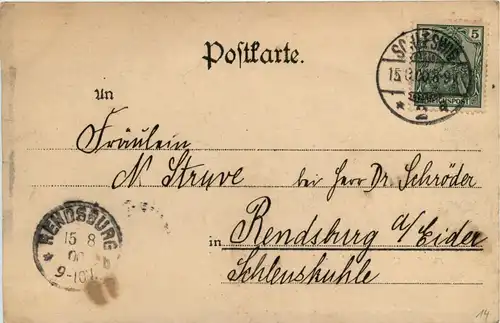 Postkarte.
SCHLESWIG
5
REICHSPOST
2 a
An
Fräulein
N. Struve bei Herr Dr. Schröder
in Rendsburg a/Eider
Schleuskuhle
RENDSBURG
15 8
00
9-10
14